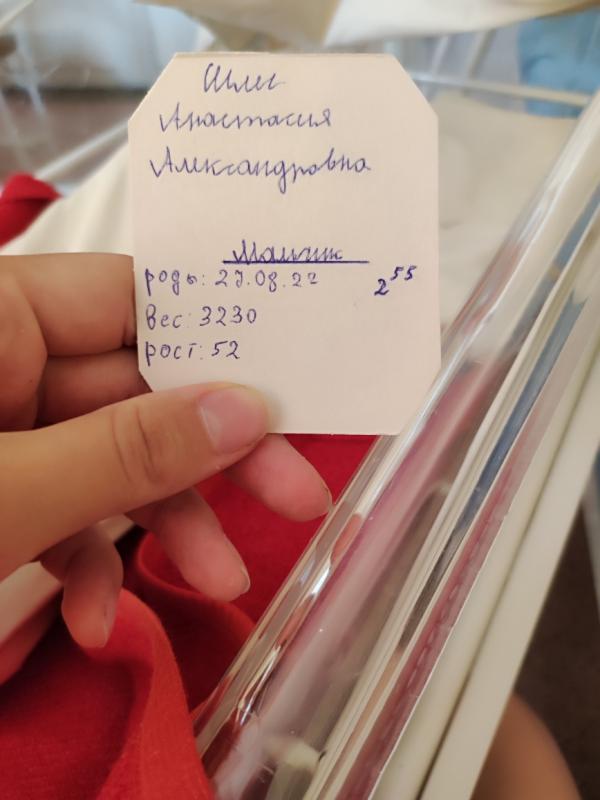 Анастасия
Александровна
Мальчик
роды: 27.08.22 2⁵⁵
вес: 3230
рост: 52